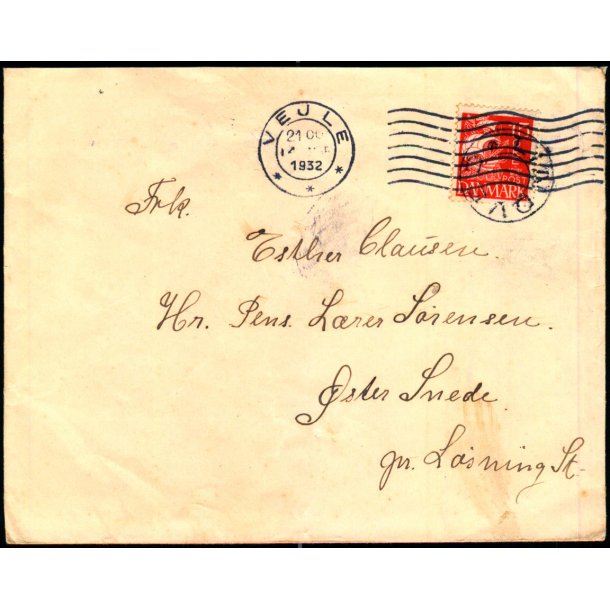 VEJLE
21 OC
1932
DANMARK
Frk.
Esther Clausen.
Hr. Pens. Lærer Sørensen.
Øster Snede
pr. Løsning St.